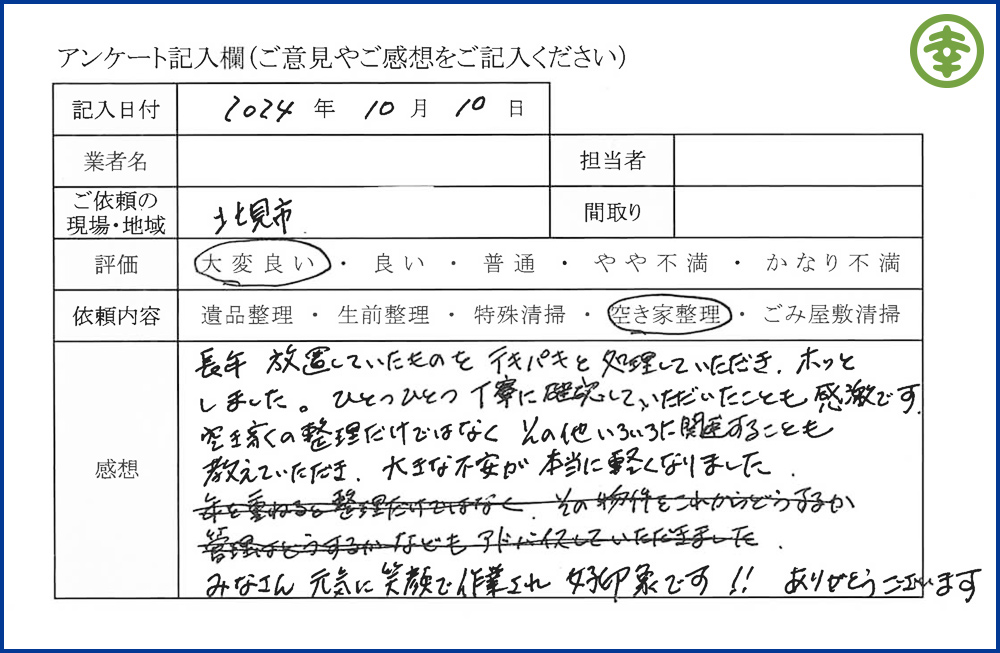 幸
アンケート記入欄(ご意見やご感想をご記入ください)
記入日付 2024 年 10 月 10 日
業者名 担当者
ご依頼の現場・地域 北見市 間取り
評価 大変良い ・ 良い ・ 普通 ・ やや不満 ・ かなり不満
依頼内容 遺品整理 ・ 生前整理 ・ 特殊清掃 ・ 空き家整理 ・ ごみ屋敷清掃
感想
長年 放置していたものを テキパキと 処理していただき、ホッと
しました。ひとつひとつ 丁寧に 確認していただいたことも 感激です
空き家の整理だけではなく その他いろいろに関連することも
教えていただき、大きな不安が 本当に軽くなりました.
年を重ねると整理だけではなく、その物件をこれからどうするか
管理はどうするかなどもアドバイスしていただきました.
みなさん 元気に笑顔で作業され 好印象です!! ありがとうございます